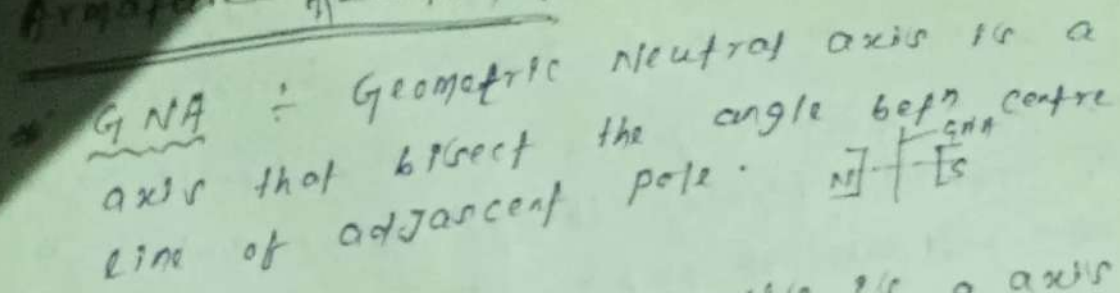 * GNA ÷ Geometric Neutral axis is a
axis that bisect the angle betn centre
line of adjascent pole.
N S GNA
is a axis